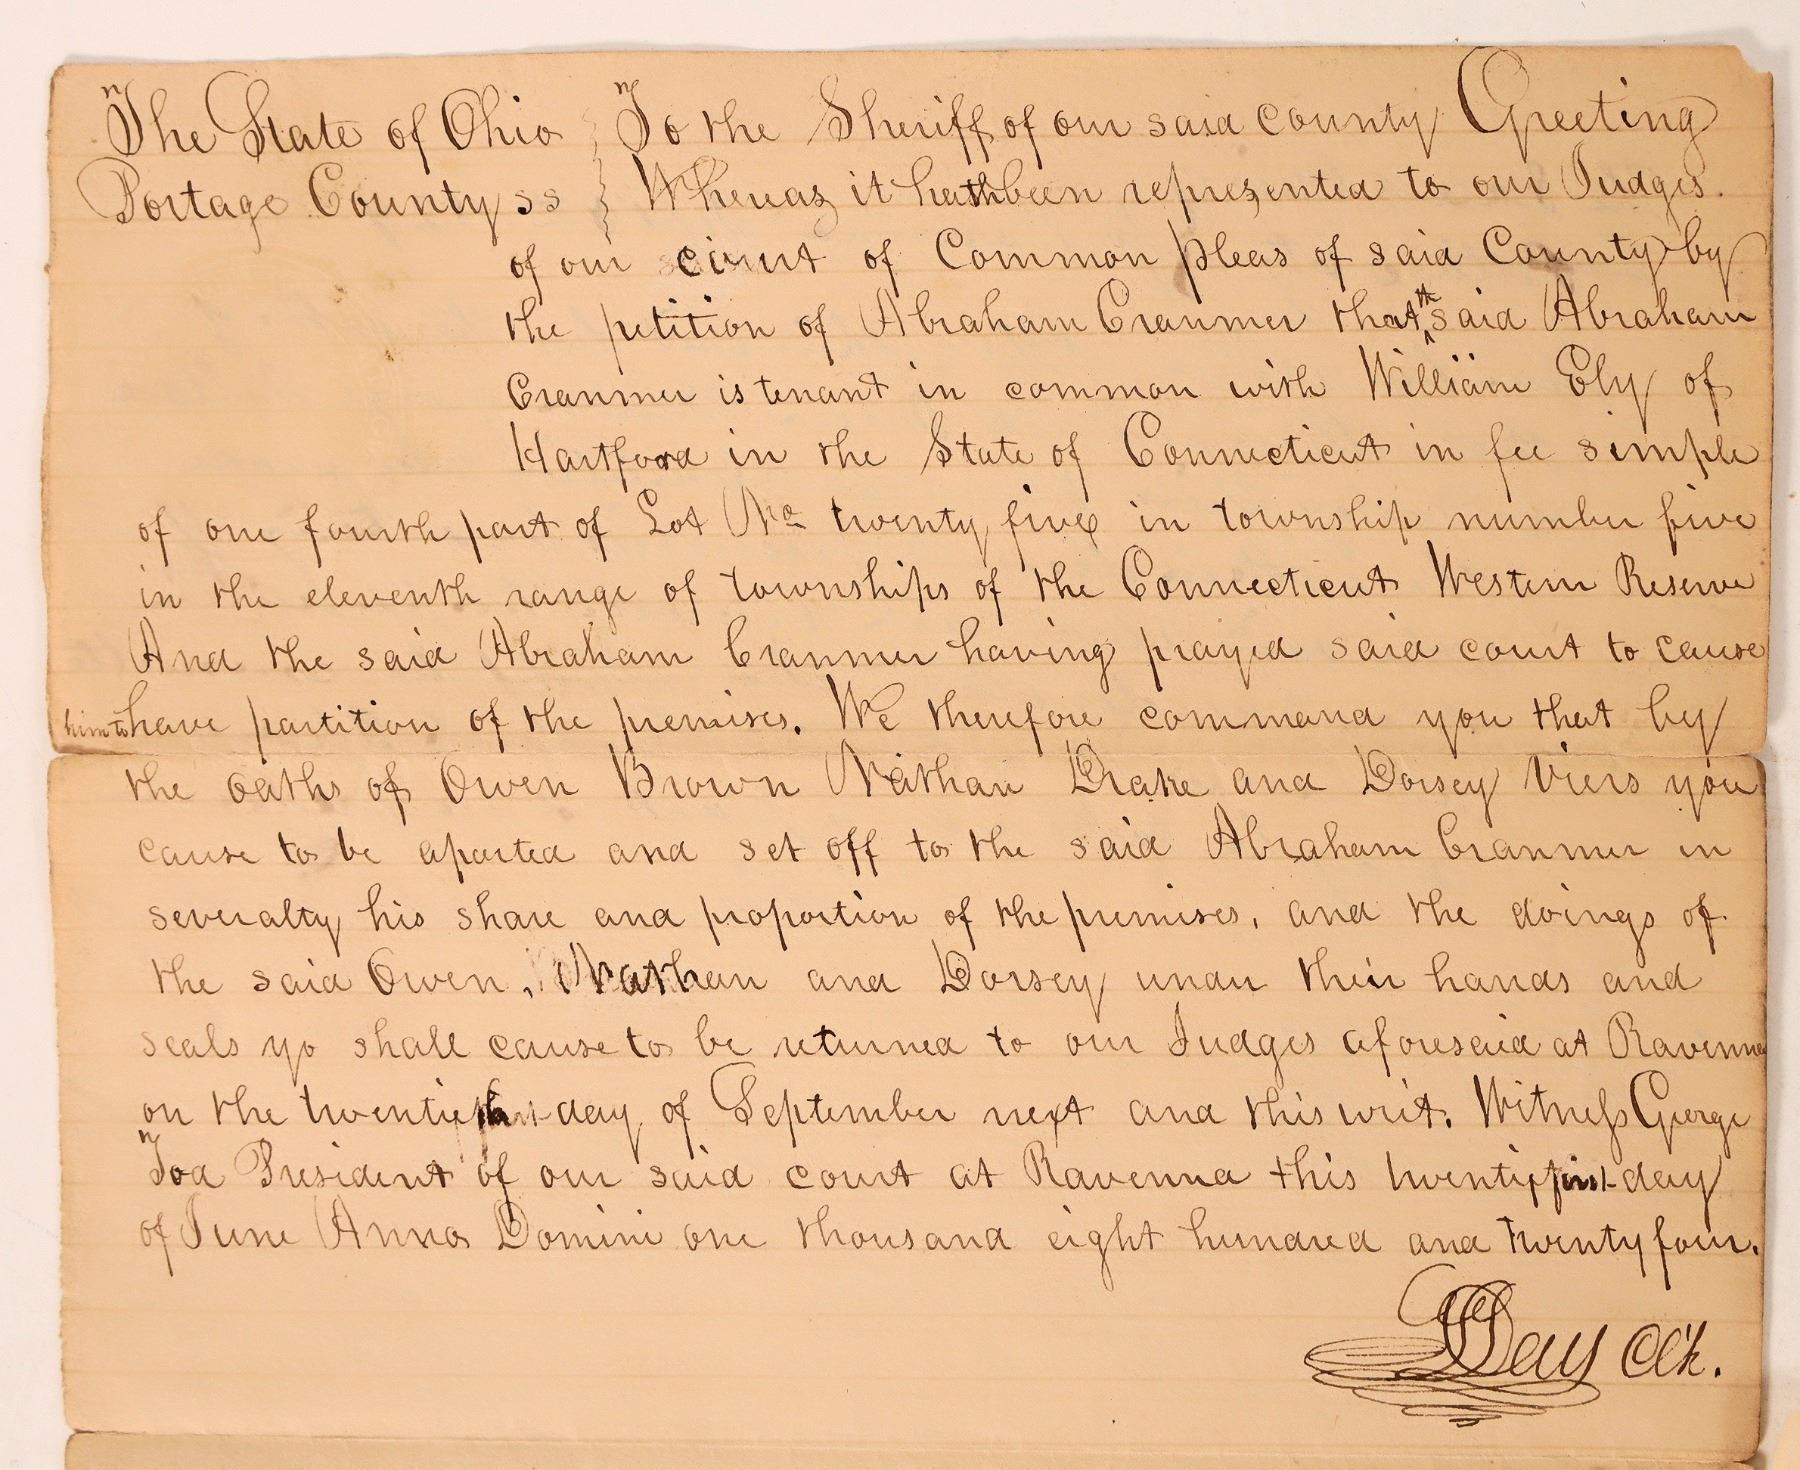 The State of Ohio } To the Sheriff of our said county Greeting
Portage County ss } Whereas it hath been represented to our Judges.
of our court of Common pleas of said County by
the petition of Abraham Cranmer that th said Abraham
Cranmer is tenant in common with William Ely of
Hartford in the State of Connecticut in fee simple
of one fourth part of Lot No twenty five in township number five
in the eleventh range of townships of the Connecticut Western Reserve
And the said Abraham Cranmer having prayed said court to cause
him to have partition of the premises. We therefore command you that by
the oaths of Owen Brown Nathan Drake and Dorsey Viers you
cause to be aparted and set off to the said Abraham Cranmer in
severalty his share and proportion of the premises, and the doings of
the said Owen, Nathan and Dorsey under their hands and
seals yo shall cause to be returned to our Judges aforesaid at Ravenna
on the day of September next and this writ. Witness George
Tod President of our said court at Ravenna this twentyfirst day
of June Anno Domini one thousand eight hundred and twenty four.
Day Clk.